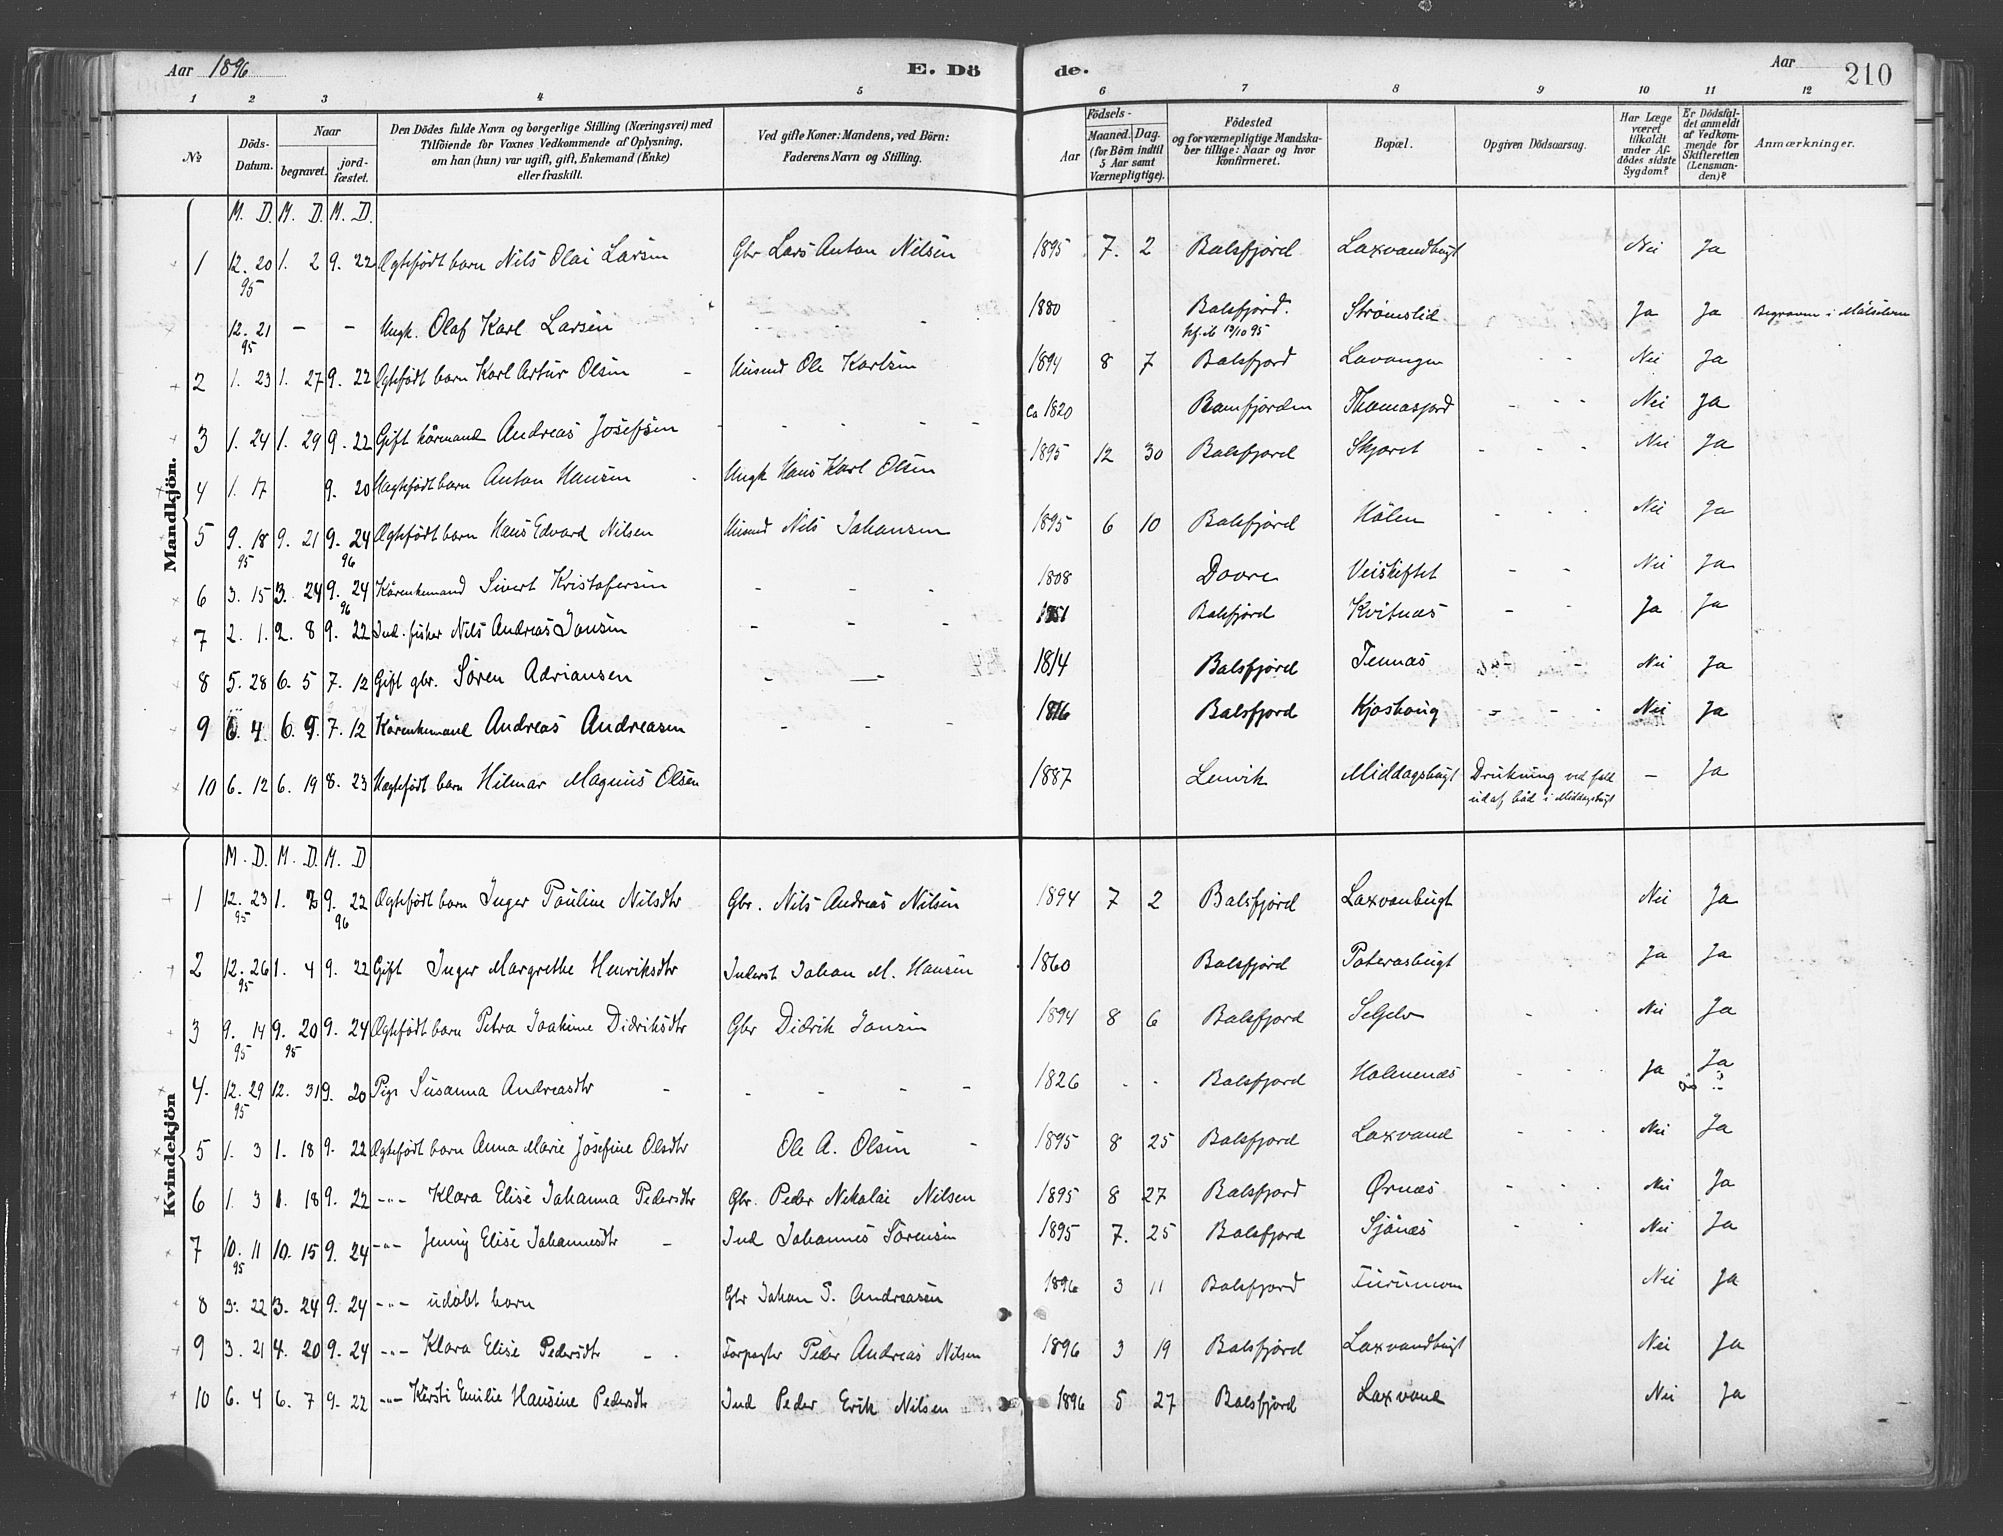 Aar 1896
E. Dö
de.
Aar
210
1 2 3 4 5 6 7 8 9 10 11 12
No
Döds-Datum.
Naar
begravet.
jord-fæstet.
Den Dödes fulde Navn og borgerlige Stilling (Næringsvei) med
Tilföiende for Voxnes Vedkommende af Oplysning,
om han (hun) var ugift, gift, Enkemand (Enke)
eller fraskilt.
Ved gifte Koner: Mandens, ved Börn:
Faderens Navn og Stilling.
Födsels-
Aar
Maaned. Dag.
(for Börn indtil
5 Aar samt
Værnepligtige).
Födested
og for værnepligtige Mandska-
ber tillige: Naar og hvor
konfirmeret.
Bopæl.
Opgiven Dödsaarsag.
Har Læge
været
tilkaldt
under Af-
dödes sidste
Sygdom?
Er Dödsfal-
det anmeldt
af Vedkom-
mende for
Skifteretten
(Lensman-
den)?
Anmærkninger.
Mandkjön.
M. D. M. D. M. D.
1 12. 20 95 1. 2 9. 22 Ægtefödt barn Nils Olai Larsen Gbr Lars Anton Nilsen 1895 7. 2 Balsfjord Laxvandbugt Nei Ja
12. 21 95 - - Ungk. Olaf Karl Larsen - - - 1880 Balsfjord. kf. 13/10 95 Strömslid Ja Ja Begraven i Målselven
2 1. 23 1. 27 9. 22 Ægtefödt barn Karl Artur Olsen - Husmd Ole Karlsen 1894 8 7 Balsfjord Lavangen - - Nei Ja
3 1. 24 1. 29 9. 22 Gift kårmand Andreas Josefsen - - - - ca 1820 Ramfjorden Thomasjord - - - Nei Ja
4 1. 17 9. 20 Uægtefödt barn Anton Hansen - Ungk Hans Karl Olsen 1895 12 30 Balsfjord Skjæret - - - Nei Ja
5 9. 18 95 9. 21 9. 24 96 Ægtefödt barn Hans Edvard Nilsen Husmd Nils Johansen 1895 6 10 Balsfjord Hölen - - - Nei Ja
6 3. 15 3. 24 9. 24 96 Kårenkemand Sivert Kristofersen - - - 1808 Dovre Veiskiftet - - Nei Ja
7 2. 1. 2. 8 9. 22 Ind. fisker Nils Andreas Jansen - - - 1851 Balsfjord Kvitnæs - - Ja Ja
8 5. 28 6. 5 7. 12 Gift gbr. Sören Adriansen - - 1814 Balsfjord Tennæs Nei Ja
9 6. 4 6. 9 7. 12 Kårenkemand Andreas Andreasen - - - 1816 Balsfjord Kjoshaug - - - Nei Ja
10 6. 12 6. 19 8. 23 Uægtefödt barn Hilmar Magnus Olsen 1887 Lenvik Middagsbugt Drukning ved fald - Ja
ud af båd i Middagsbugt
Kvindekjön
M. D. M. D. M. D
1 12. 23 95 1. 9. 22 96 Ægtefödt barn Inger Pauline Nilsdtr Gbr. Nils Andreas Nilsen 1894 7 2 Balsfjord Laxvanbugt Nei Ja
2 12. 26 95 1. 4 9. 22 Gift Inger Margrethe Henriksdtr Inderst Johan M. Hansen 1860 Balsfjord Paterasbugt Ja Ja
3 9. 14 95 9. 20 95 9. 24 Ægtefödt barn Petra Joakime Didriksdtr Gbr Didrik Jansen 1894 8 6 Balsfjord Selelv - - Nei Ja
4. 12. 29 95 12. 31 9. 20 Pige Susanna Andreasdtr - - - - - 1826 - - Balsfjord Holmenæs - - - Ja Ja
5 1. 3 1. 18 9. 22 Ægtefödt barn Anna Marie Josefine Olsdtr Ole A. Olsen - 1895 8 25 Balsfjord Laxvand - - - Nei Ja
6 1. 3 1. 18 9. 22 -"- Klara Elise Johanna Pedersdtr Gbr. Peder Nikolai Nilsen 1895 8 27 Balsfjord Ørnæs - - - Nei Ja
7 10. 11 95 10. 15 9. 24 -"- Jenny Elise Johannesdtr - Ind Johannes Sörensen 1895 7. 25 Balsfjord Sjånæs - - Nei Ja
8 3. 22 3. 24 9. 24 -"- udöbt barn Gbr Johan S. Andreasen 1896 3 11 Balsfjord Furumoen Nei Ja
9 3. 21 4. 20 9. 24 -"- Klara Elise Pedersdtr - - Forpagter Peder Andreas Nilsen 1896 3 19 Balsfjord Laxvandbugt Nei Ja
10 6. 4 6. 7 9. 22 -"- Kirsti Emilie Hansine Pedersdtr Ind Peder Erik Nilsen 1896 5 27 Balsfjord Laxvand Nei Ja